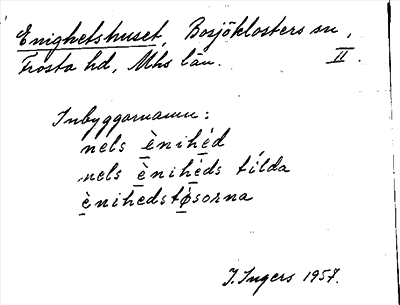 Enighetshuset, Bosjöklosters sn,
Frosta hd, Mhs län. II.
Inbyggarnamn:
nels ènihéd
nels ènihéds tílda
ènihedstø̀sorna
J. Ingers 1957.